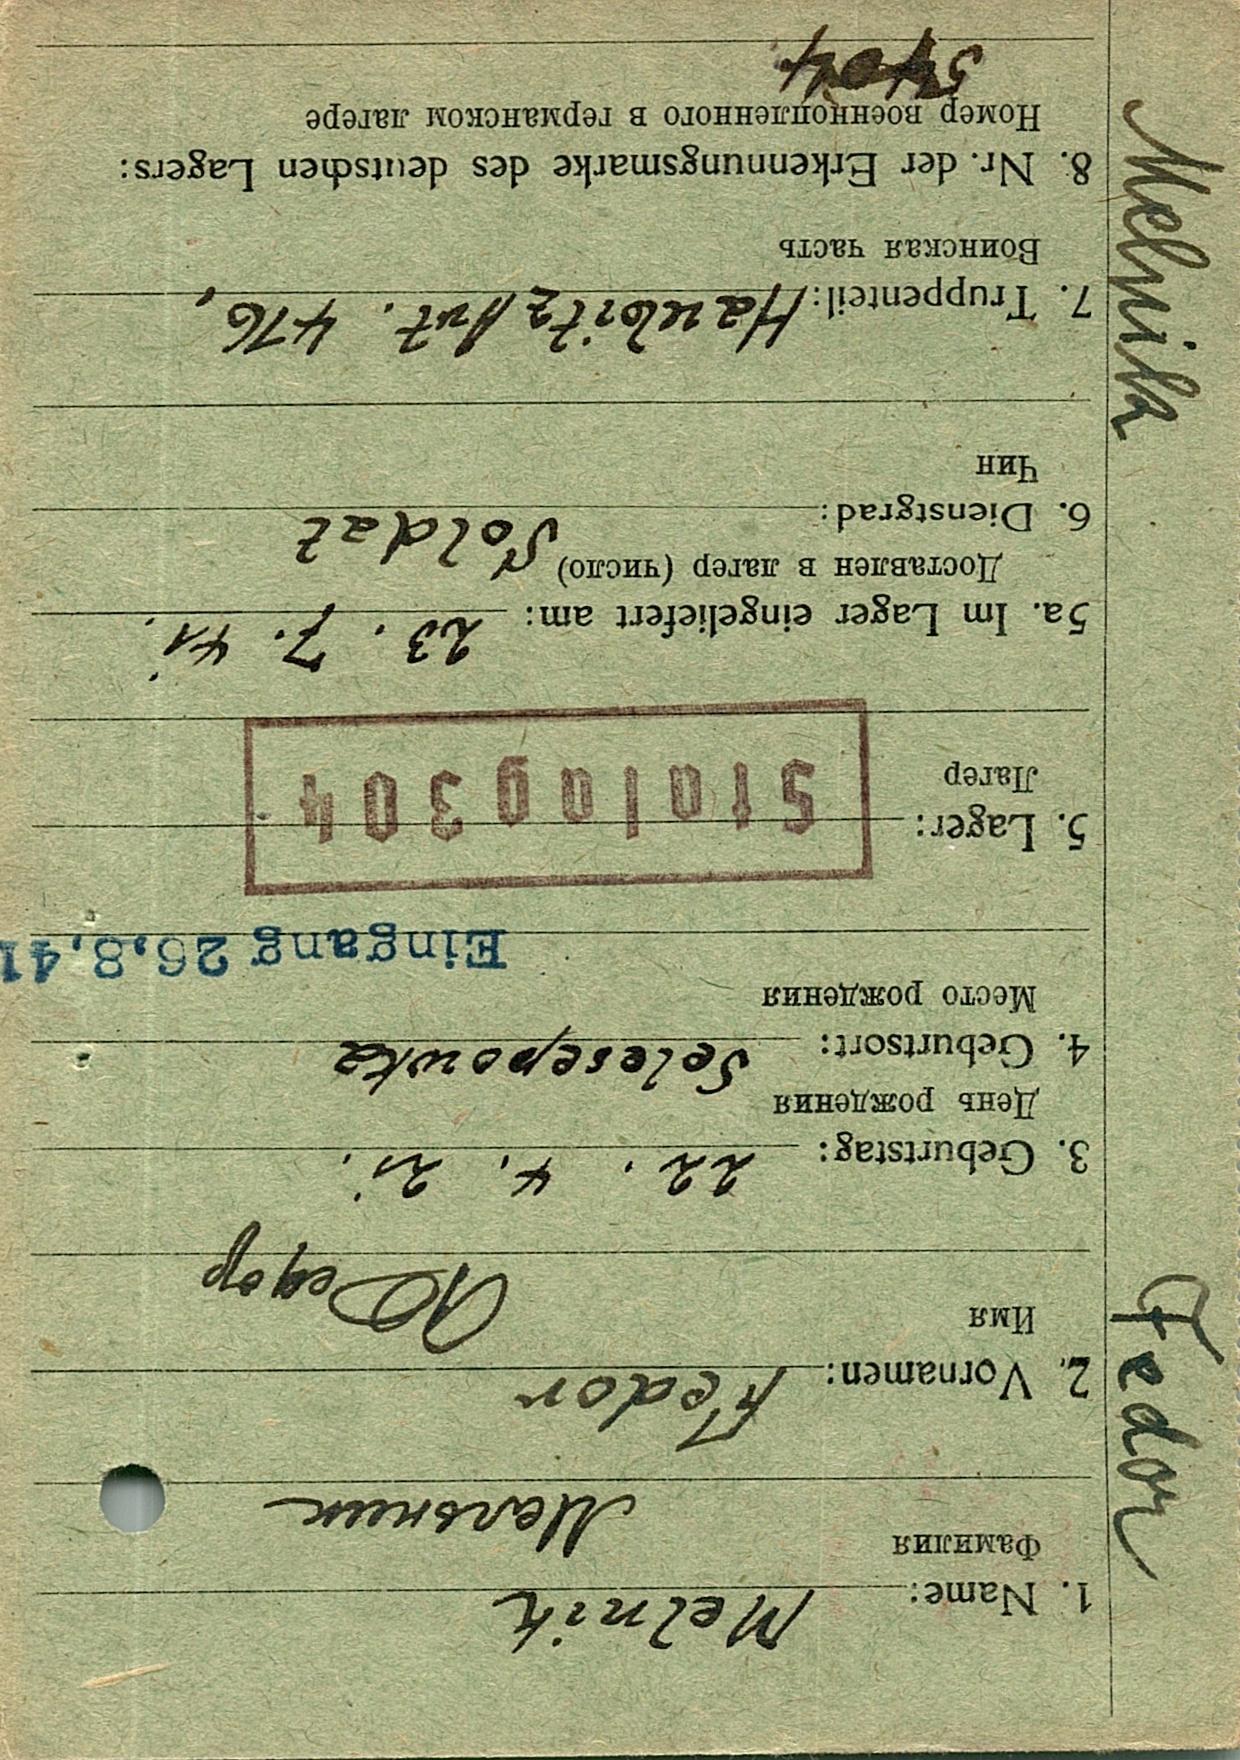 Melnik
1. Name:
Фамилия
Мельник
Fedor
2. Vornamen:
Имя
Федор
22. 4. 21.
3. Geburtstag:
День рождения
4. Geburtsort: Selesepowka
Место рождения
Eingang 26.8.41
5. Lager: Stalag 304
Лагер
5a. Im Lager eingeliefert am: 23. 7. 41.
Доставлен в лагер (число)
6. Dienstgrad: Soldat
Чин
7. Truppenteil: Haubitz Art. 476,
Воинская часть
8. Nr. der Erkennungsmarke des deutschen Lagers:
Номер военнопленного в германском лагере
5404
Melnik
Fedor